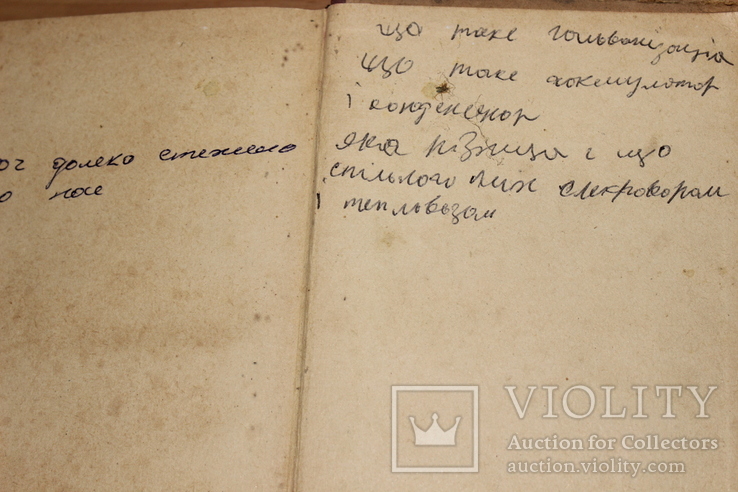 оч далеко стежено
о нас
що таке гальванизація
що таке аккмулятор
і конденснор
яка різниця є що
спільного між слекровозом
і тепльвозом
VIOLITY
Auction for Collectors
auction.violity.com